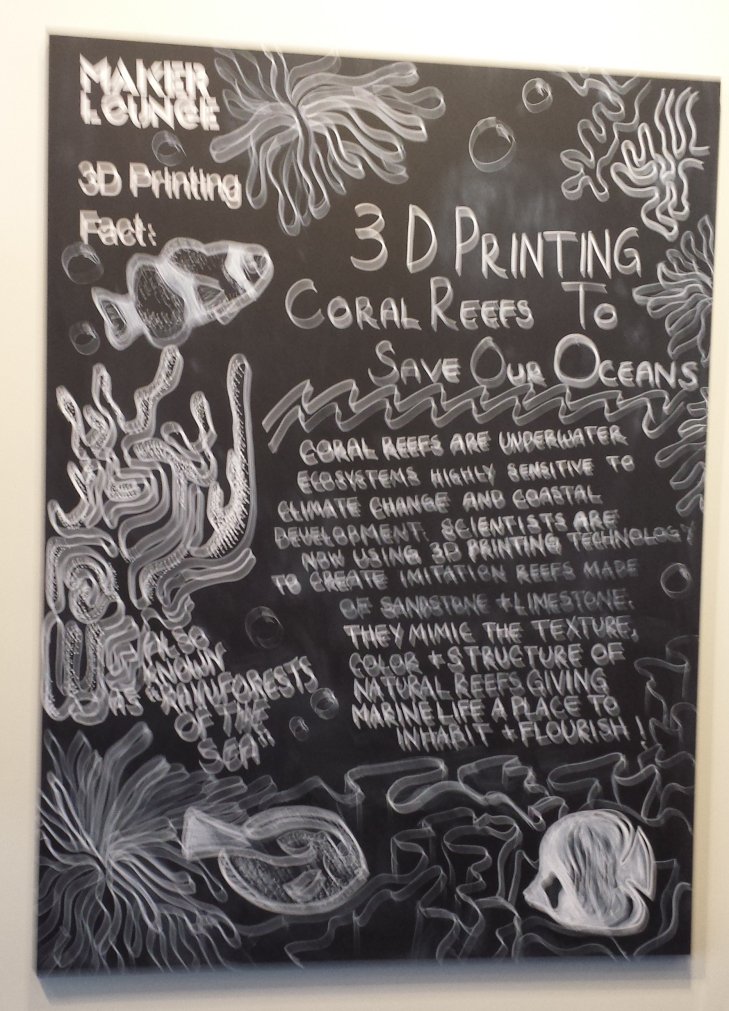 MAKER
LOUNGE
3D Printing
Fact:
3D PRINTING
CORAL REEFS TO
SAVE OUR OCEANS
CORAL REEFS ARE UNDERWATER
ECOSYSTEMS HIGHLY SENSITIVE TO
CLIMATE CHANGE AND COASTAL
DEVELOPMENT. SCIENTISTS ARE
NOW USING 3D PRINTING TECHNOLOGY
TO CREATE IMITATION REEFS MADE
OF SANDSTONE + LIMESTONE.
THEY MIMIC THE TEXTURE,
COLOR + STRUCTURE OF
NATURAL REEFS GIVING
MARINE LIFE A PLACE TO
INHABIT + FLOURISH!
ALSO
KNOWN
AS "RAINFORESTS
OF THE
SEA"